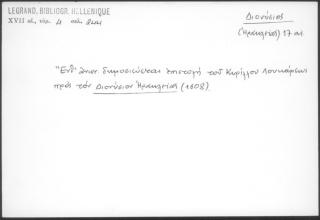 LEGRAND, BIBLIOGR. HELLENIQUE
XVII αἰ, τόμ. 4 σελ.
Διονύσιος
(Ἡρακλείας) 17 αι.
"Ενθ' ὅπου δημοσιεύεται ἐπιστολή τοῦ Κυρίλλου Λουκάρεως
πρὸς τὸν Διονύσιον Ἡρακλείας (1608)